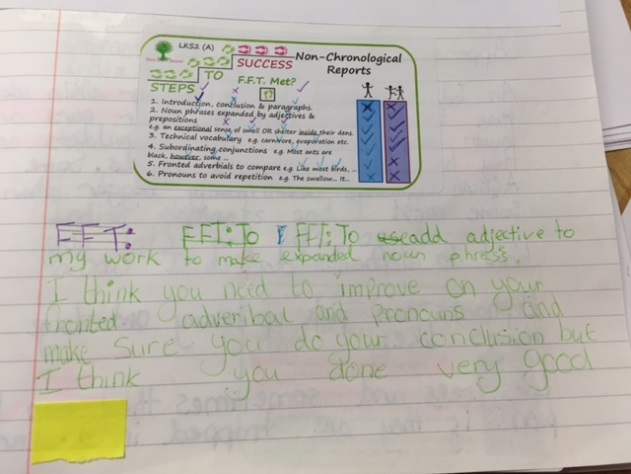 LKS2 (A)
SUCCESS
Non-Chronological
Reports
TO
F.F.T. Met?
STEPS
1. Introduction, conclusion & paragraphs.
2. Noun phrases expanded by adjectives &
prepositions
e.g an exceptional sense of smell OR shelter inside their dens.
3. Technical vocabulary e.g. carnivore, evaporation etc.
4. Subordinating conjunctions e.g. Most ants are
black, however, some ...
5. Fronted adverbials to compare e.g. Like most birds, ...
6. Pronouns to avoid repetition e.g. The swallow... it...
FFT: FFT: To FFT: To add adjective to
my work to make expanded noun phress.
I think you need to improve on your
fronted adveribal and pronouns and
make sure you do your conclusion but
I think you done very good